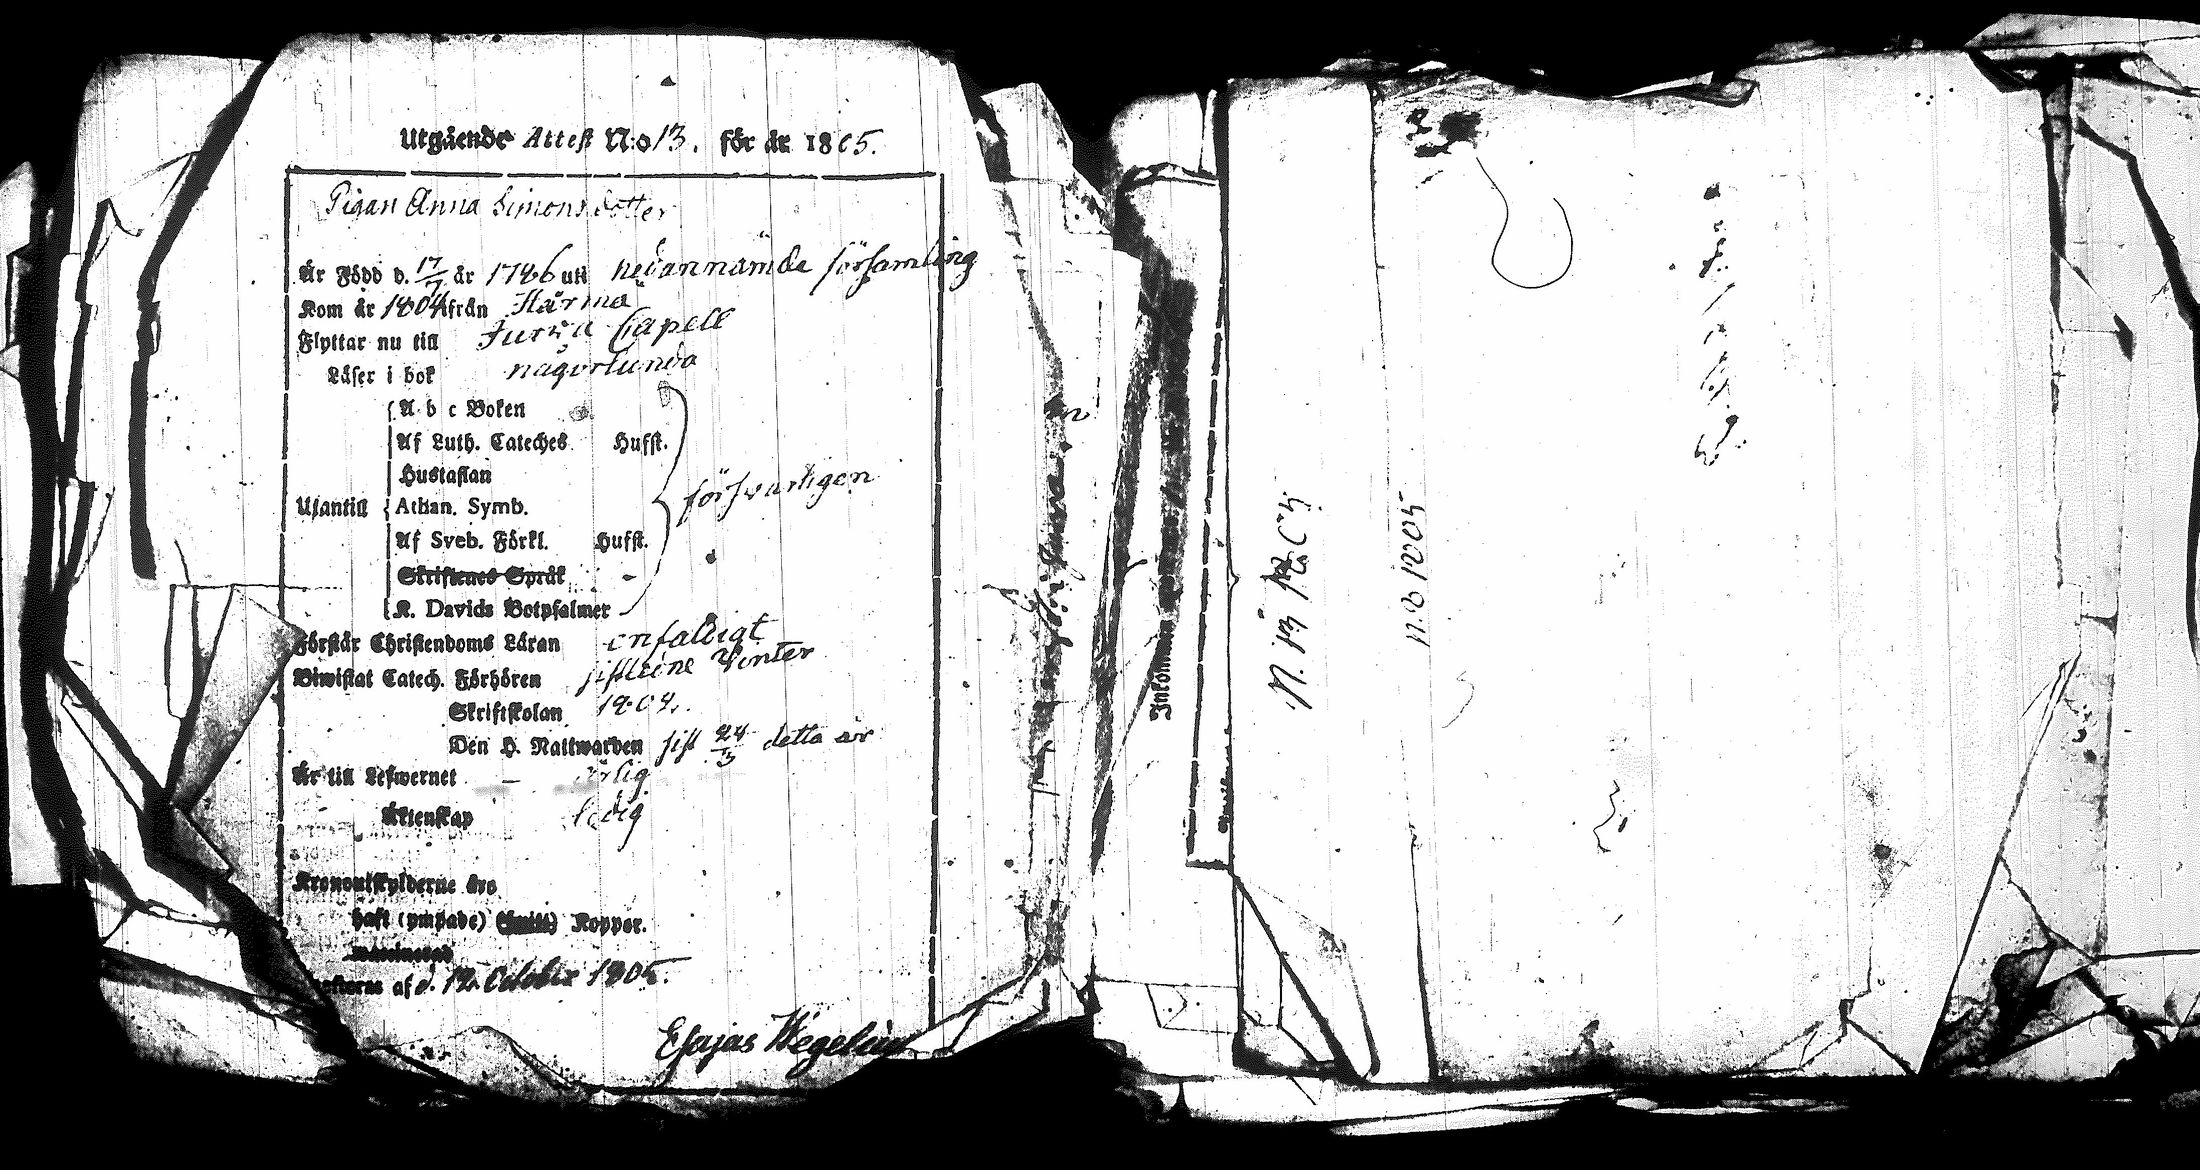 Utgående Attest N:o 13. för år 1805.
Pigan Anna Simonsdotter
Är Född d. 17/7 år 1786 uti nedannämde församling
Kom år 1804 ifrån Härmä
Flyttar nu till Jurva Capell
Läser i bok någorlunda
A b c Boken
Af Luth. Cateches Hufst.
Hustaflan
Utantill Athan. Symb. försvarligen
Af Sveb. Förkl. Hufst.
Skriftenes Språk
K. Davids Botpsalmer
Förstår Christendoms Läran enfaldigt
Biwistat Catech. Förhören sistledne Vinter
Skriftskolan 1804.
Den H. Nattwarden sist 24/3 detta år
Är till Lefwernet – ärlig
Äktenskap ledig
Kronoutskylderne äro
haft (ympade) Koppor.
af d. 12 October 1805.
Esajas Wegelius
Inkommun
N. 13 1805
n. 8 1805